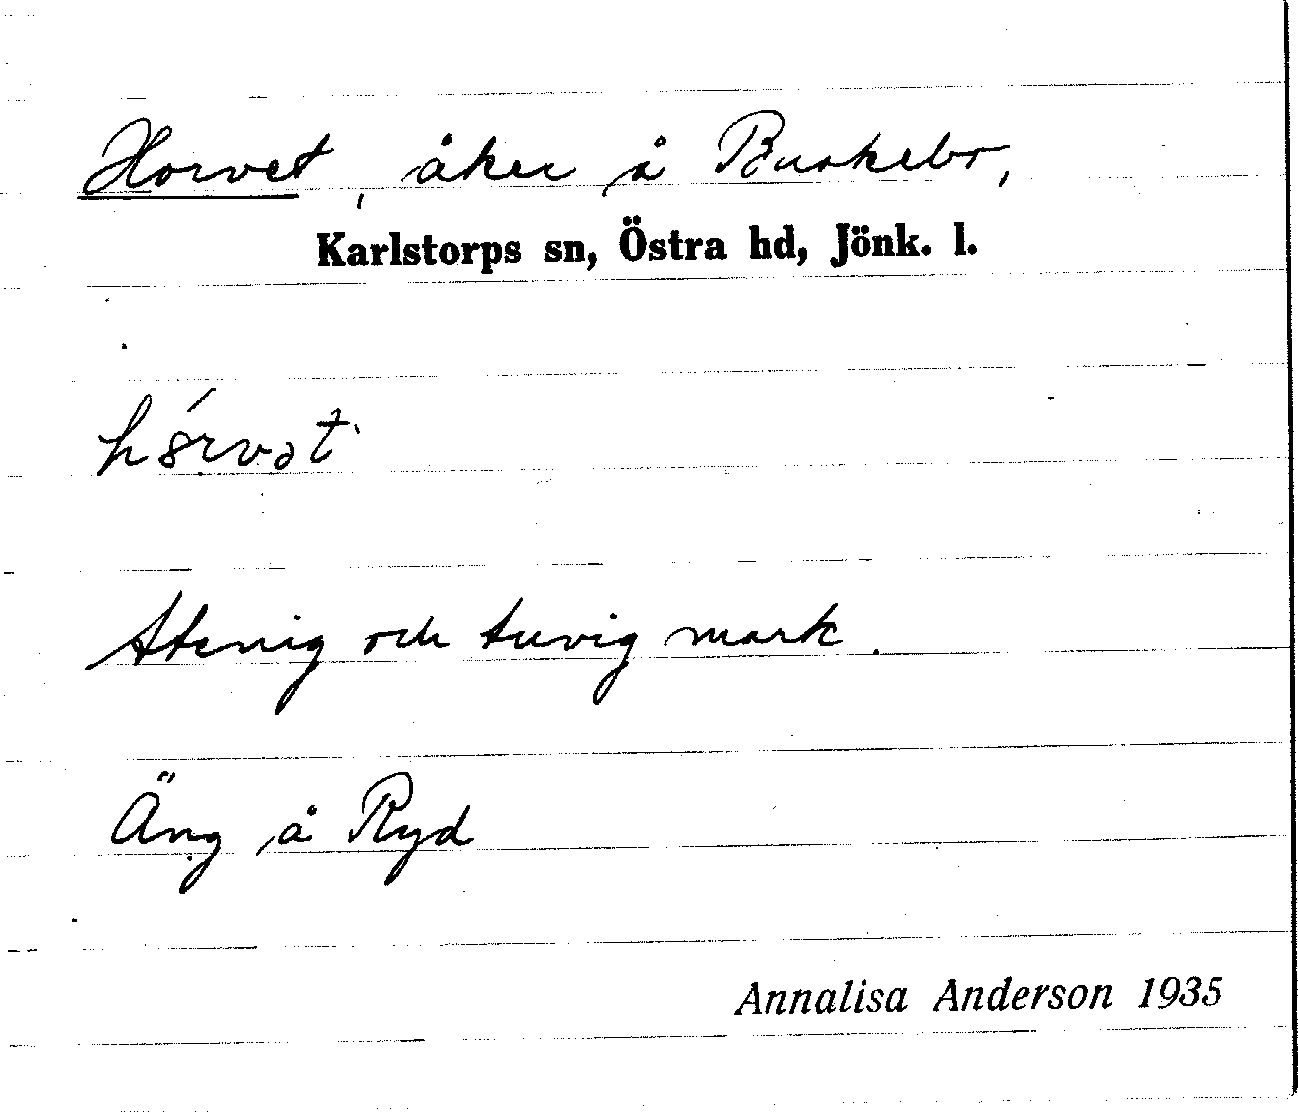 Horvet, åker å Buskebo,
Karlstorps sn, Östra hd, Jönk. l.
Stenig och tuvig mark.
Äng å Ryd
Annalisa Anderson 1935